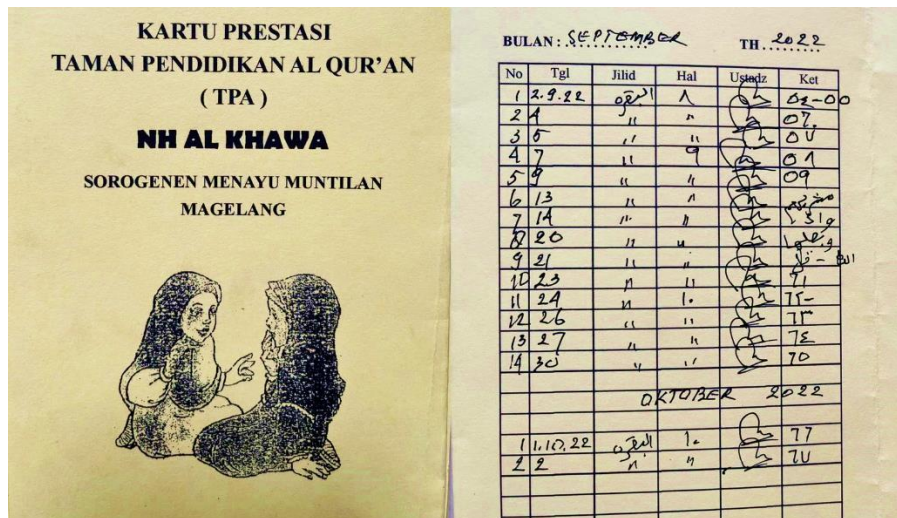 KARTU PRESTASI
TAMAN PENDIDIKAN AL QUR'AN
( TPA )
NH AL KHAWA
SOROGENEN MENAYU MUNTILAN
MAGELANG
BULAN : SEPTEMBER TH. 2022
No Tgl Jilid Hal Ustadz Ket
1 2.9.22 البقرة ٨
2 4 " " ٥٦
3 5 " " ٥٧
4 7 " 9 ٥٨
5 9 " " ٥٩
6 13 " "
7 14 " "
8 20 " "
9 21 " "
10 23 " " ٦١
11 24 " ١٠ ٦٢
12 26 " " ٦٣
13 27 " " ٦٤
14 30 " " ٦٥
OKTOBER 2022
1 1.10.22 البقرة ١٠ ٦٦
2 2 " " ٦٧